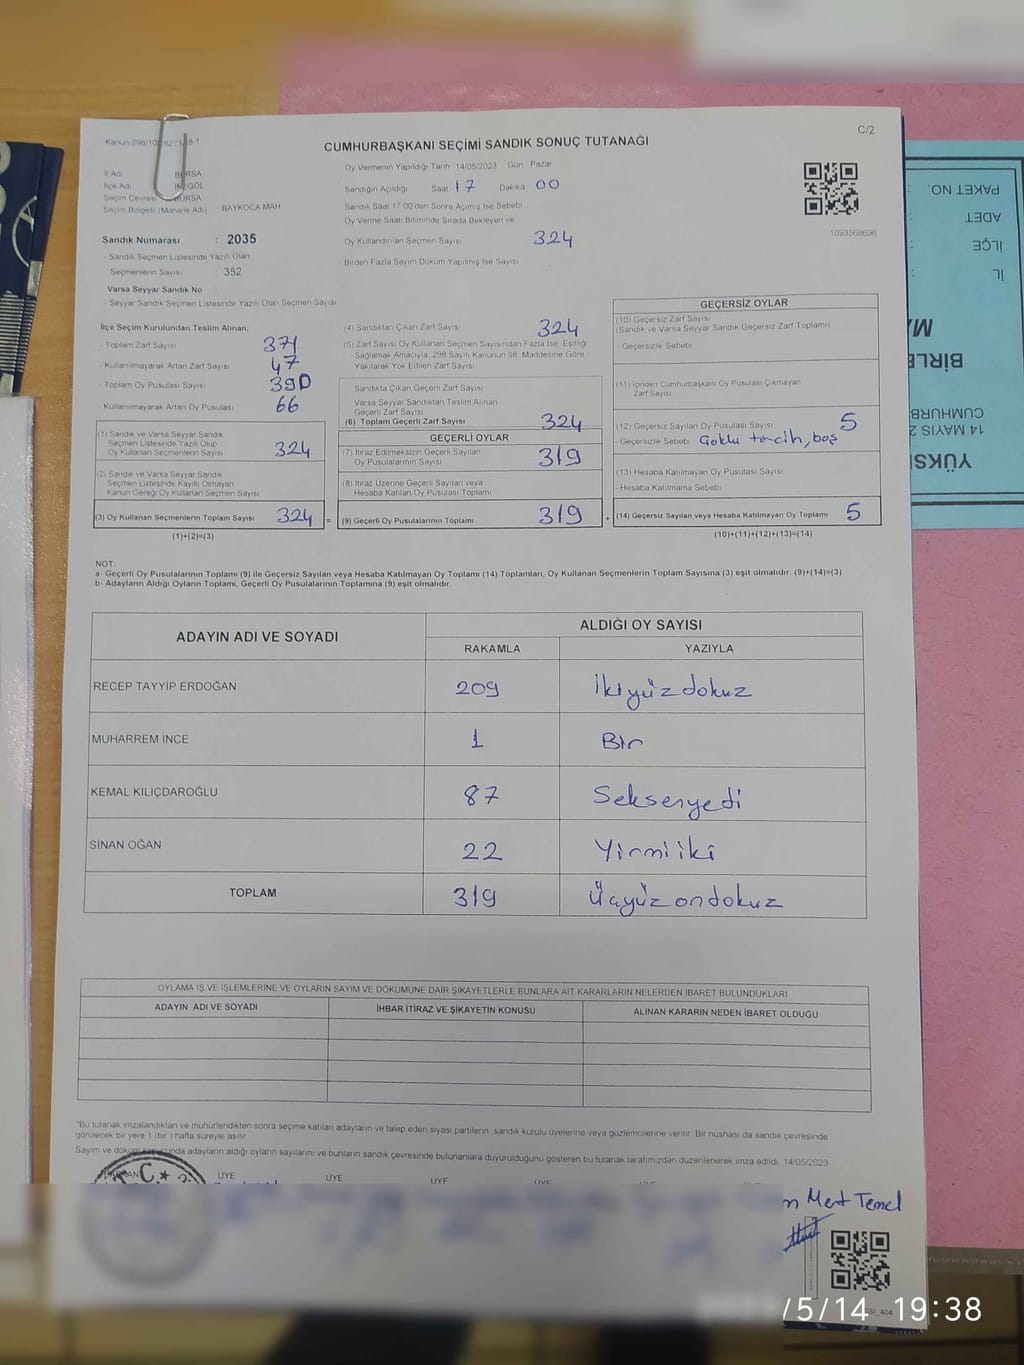 C/2
CUMHURBAŞKANI SEÇİMİ SANDIK SONUÇ TUTANAĞI
İl Adı : BURSA
İlçe Adı : İNEGÖL
Seçim Çevresi : BURSA
Seçim Bölgesi (Mahalle Adı) BAYKOCA MAH.
Sandık Numarası : 2035
- Sandık Seçmen Listesinde Yazılı Olan
Seçmenlerin Sayısı : 352
Varsa Seyyar Sandık No
- Seyyar Sandık Seçmen Listesinde Yazılı Olan Seçmen Sayısı
Oy Vermenin Yapıldığı Tarih 14/05/2023 Gün Pazar
Sandığın Açıldığı Saat 17 Dakika 00
Sandık Saat 17.00'den Sonra Açılmış İse Sebebi
Oy Verme Saati Bitiminde Sırada Bekleyen ve
Oy Kullandırılan Seçmen Sayısı 324
Birden Fazla Sayım Döküm Yapılmış İse Sayısı
1093568696
İlçe Seçim Kurulundan Teslim Alınan;
- Toplam Zarf Sayısı 371
- Kullanılmayarak Artan Zarf Sayısı 47
- Toplam Oy Pusulası Sayısı 390
- Kullanılmayarak Artan Oy Pusulası 66
(1) Sandık ve Varsa Seyyar Sandık
Seçmen Listesinde Yazılı Olup
Oy Kullanan Seçmenlerin Sayısı 324
(2) Sandık ve Varsa Seyyar Sandık
Seçmen Listesinde Kayıtlı Olmayan
Kanun Gereği Oy Kullanan Seçmen Sayısı
(3) Oy Kullanan Seçmenlerin Toplam Sayısı 324 =
(1)+(2)=(3)
(4) Sandıktan Çıkan Zarf Sayısı 324
(5) Zarf Sayısı Oy Kullanan Seçmen Sayısından Fazla İse, Eşitliği
Sağlamak Amacıyla, 298 Sayılı Kanunun 98. Maddesine Göre
Yakılarak Yok Edilen Zarf Sayısı
Sandıkta Çıkan Geçerli Zarf Sayısı
Varsa Seyyar Sandıktan Teslim Alınan
Geçerli Zarf Sayısı
(6) Toplam Geçerli Zarf Sayısı 324
GEÇERLİ OYLAR
(7) İtiraz Edilmeksizin Geçerli Sayılan
Oy Pusulalarının Sayısı 319
(8) İtiraz Üzerine Geçerli Sayılan veya
Hesaba Katılan Oy Pusulası Toplamı
(9) Geçerli Oy Pusulalarının Toplamı 319 +
GEÇERSİZ OYLAR
(10) Geçersiz Zarf Sayısı
(Sandık ve Varsa Seyyar Sandık Geçersiz Zarf Toplamı)
- Geçersizlik Sebebi
(11) İçinden Cumhurbaşkanı Oy Pusulası Çıkmayan
Zarf Sayısı
(12) Geçersiz Sayılan Oy Pusulası Sayısı 5
- Geçersizlik Sebebi Çoklu tercih, boş
(13) Hesaba Katılmayan Oy Pusulası Sayısı
- Hesaba Katılmama Sebebi
(14) Geçersiz Sayılan veya Hesaba Katılmayan Oy Toplamı 5
(10)+(11)+(12)+(13)=(14)
NOT:
a- Geçerli Oy Pusulalarının Toplamı (9) ile Geçersiz Sayılan veya Hesaba Katılmayan Oy Toplamı (14) Toplamları, Oy Kullanan Seçmenlerin Toplam Sayısına (3) eşit olmalıdır. (9)+(14)=(3)
b- Adayların Aldığı Oyların Toplamı, Geçerli Oy Pusulalarının Toplamına (9) eşit olmalıdır.
ADAYIN ADI VE SOYADI ALDIĞI OY SAYISI
RAKAMLA YAZIYLA
RECEP TAYYİP ERDOĞAN 209 İkiyüzdokuz
MUHARREM İNCE 1 Bir
KEMAL KILIÇDAROĞLU 87 Seksenyedi
SİNAN OĞAN 22 Yirmiiki
TOPLAM 319 Üçyüzondokuz
OYLAMA İŞ VE İŞLEMLERİNE VE OYLARIN SAYIM VE DÖKÜMÜNE DAİR ŞİKAYETLERLE BUNLARA AİT KARARLARIN NELERDEN İBARET BULUNDUKLARI
ADAYIN ADI VE SOYADI İHBAR İTİRAZ VE ŞİKAYETİN KONUSU ALINAN KARARIN NEDEN İBARET OLDUĞU
*Bu tutanak imzalandıktan ve mühürlendikten sonra seçime katılan adayların ve talep eden siyasi partilerin sandık kurulu üyelerine veya gözlemcilerine verilir. Bir nüshası da sandık çevresinde
görülecek bir yere 1 (bir) hafta süreyle asılır.
Sayım ve döküm sonucunda adayların aldığı oyların sayılarını ve bunların sandık çevresinde bulunanlara duyurulduğunu gösteren bu tutanak tarafımızdan düzenlenerek imza edildi. 14/05/2023
T.C.
ÜYE ÜYE ÜYE
Mert Temel
/5/14 19:38
PAKET NO.
ADET
İLÇE
İL
BİRLE
14 MAYIS 2
CUMHURB
YÜKS